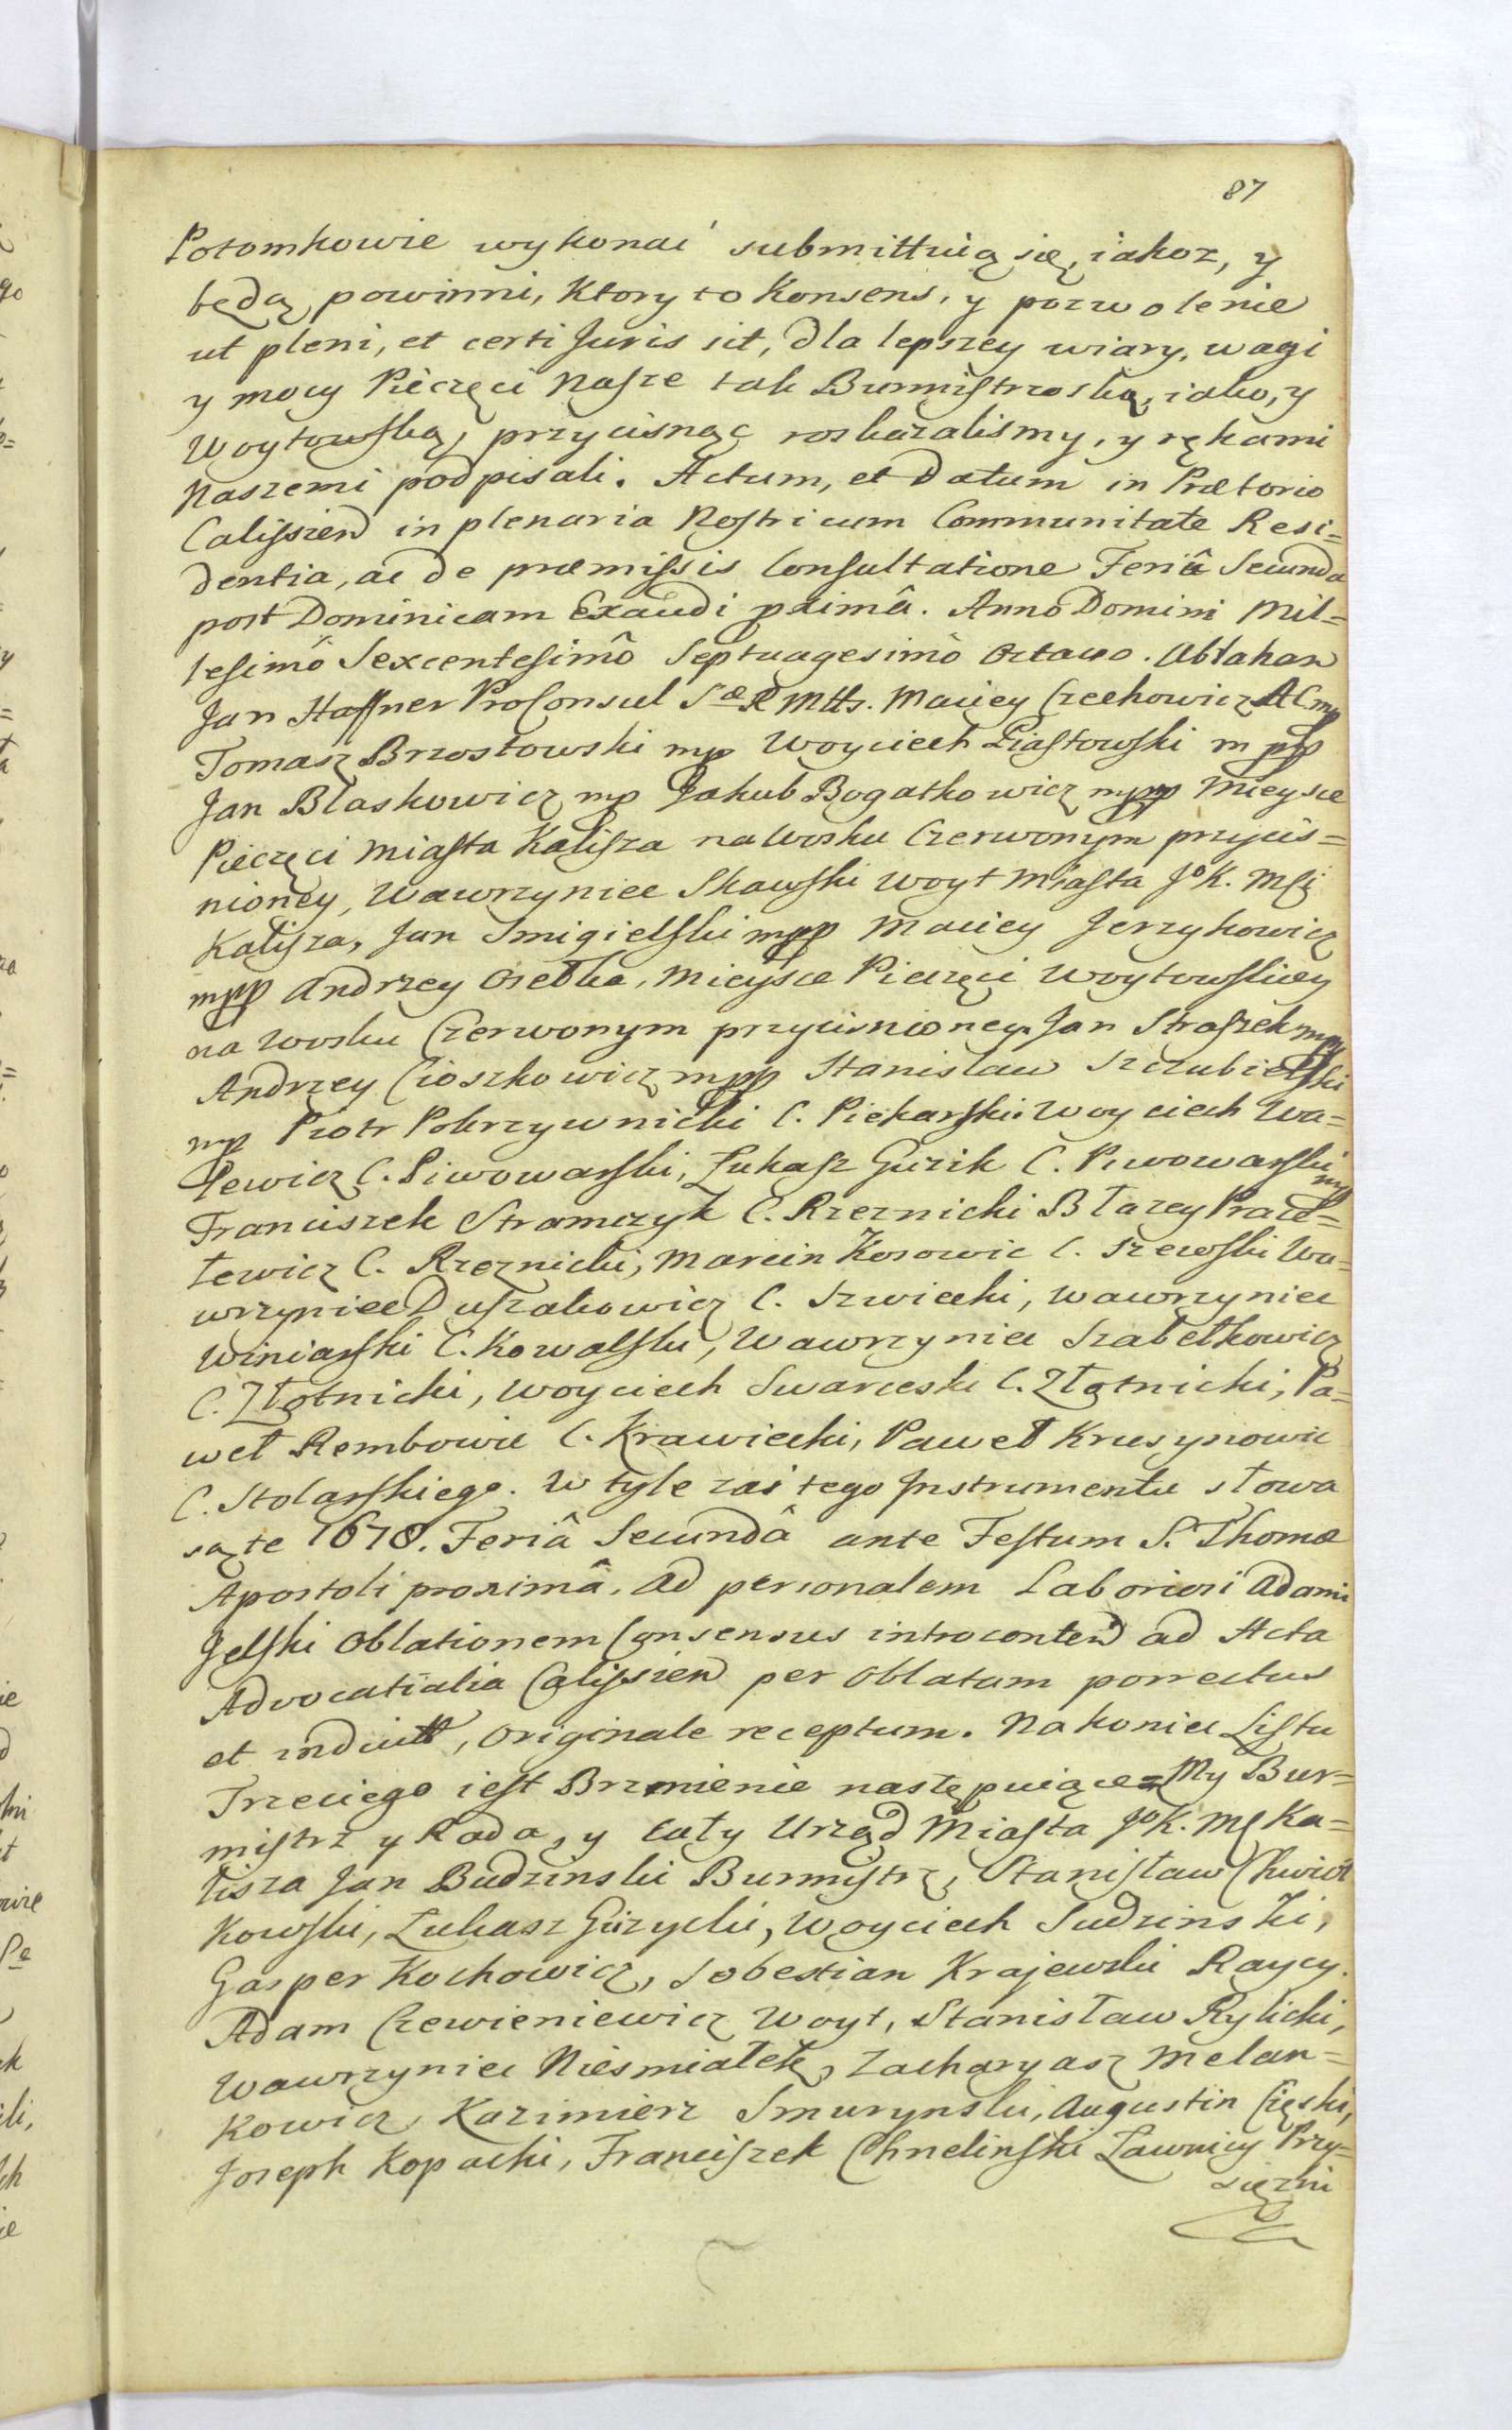 87
Potomkowie wykonać submittuią się, iakoz, y
będą powinni, Ktory to Konsens, y pozwolenie
ut pleni, et certi Juris sit, dla lepszey wiary, wagi
y mocy Pieczęci Nasze tak Burmistrzoską, iako, y
Woytowską, przycisnąc roskazalismy, y rękami
Naszemi podpisali. Actum, et Datum in Prætorio
Calissien in plenaria Nostri cum Communitate Resi=
dentia, ac de præmissis Consultatione Feriâ Secunda
post Dominicam Exaudi primâ. Anno Domini Mil=
lesimô Sexcentesimô Septuagesimô Octavo. Abraham
Jan Haffner ProConsul Sæ R Mtts. Maciey Czechowicz AC mp
Tomasz Brzostowski mp Woyciech Piastowski mpp
Jan Blaskowicz mp Jakub Bogatkowicz mpp Mieysce
Pieczęci Miasta Kalisza na Wosku Czerwonym przycis=
nioney, Wawrzyniec Skawski Woyt Miasta Jo K. Msi
Kalisza, Jan Smigielski mpp Maciey Jerzykowicz
mpp Andrzey Osetka, Mieysce Pieczęci Woytowskiey
na Wosku Czerwonym przycisnioney. Jan Straszek mpp
Andrzey Cioszkowicz mpp Stanislaw Szczubielski
mp Piotr Pokrzywnicki C. Piekarski. Woyciech Wa=
lewicz C. Piwowarski, Łukasz Guzik C. Piwowarski mp
Franciszek Stramczyk C. Rzeznicki Błazey Pracel=
lewicz C. Rzeznicki, Marcin Kosowic C. Szewski Wa=
wrzyniec Duszakowicz C. Szwiecki, Wawrzyniec
Winiarski C. Kowalski, Wawrzyniec Szabelkowicz
C. Złotnicki, Woyciech Swarceski C. Złotnicki, Pa=
weł Rembowic C. Krawiecki, Paweł Krusynowic
C. Stolarskiego. W tyle zaś tego Instrumentu słowa
są te 1678. Feriâ Secundâ ante Festum S. Thomæ
Apostoli proximâ. Ad personalem Laboriosi Adami
Jelski Oblationem Consensus introconten ad Acta
Advocatialia Calissien per Oblatam porrectus
et induitt, Originale receptum. Na koniec Listu
Trzeciego iest Brzmienie następuiące= My Bur=
mistrz y Rada, y cały Urząd Miasta Jo K. Ms Ka=
lisza Jan Budzinski Burmistrz, Stanisław Chwiał
kowski, Łukasz Guzycki, Woyciech Sudzinski,
Gasper Kochowicz, Sebestian Krajewski Raycy.
Adam Czewieniewicz Woyt, Stanisław Rylicki,
Wawrzyniec Niesmiałek, Zacharyasz Melan=
kowicz, Kazimierz Smurynski, Augustin Cięski,
Joseph Kopacki, Franciszek Chmelinski Ławnicy Przy=
sięzni